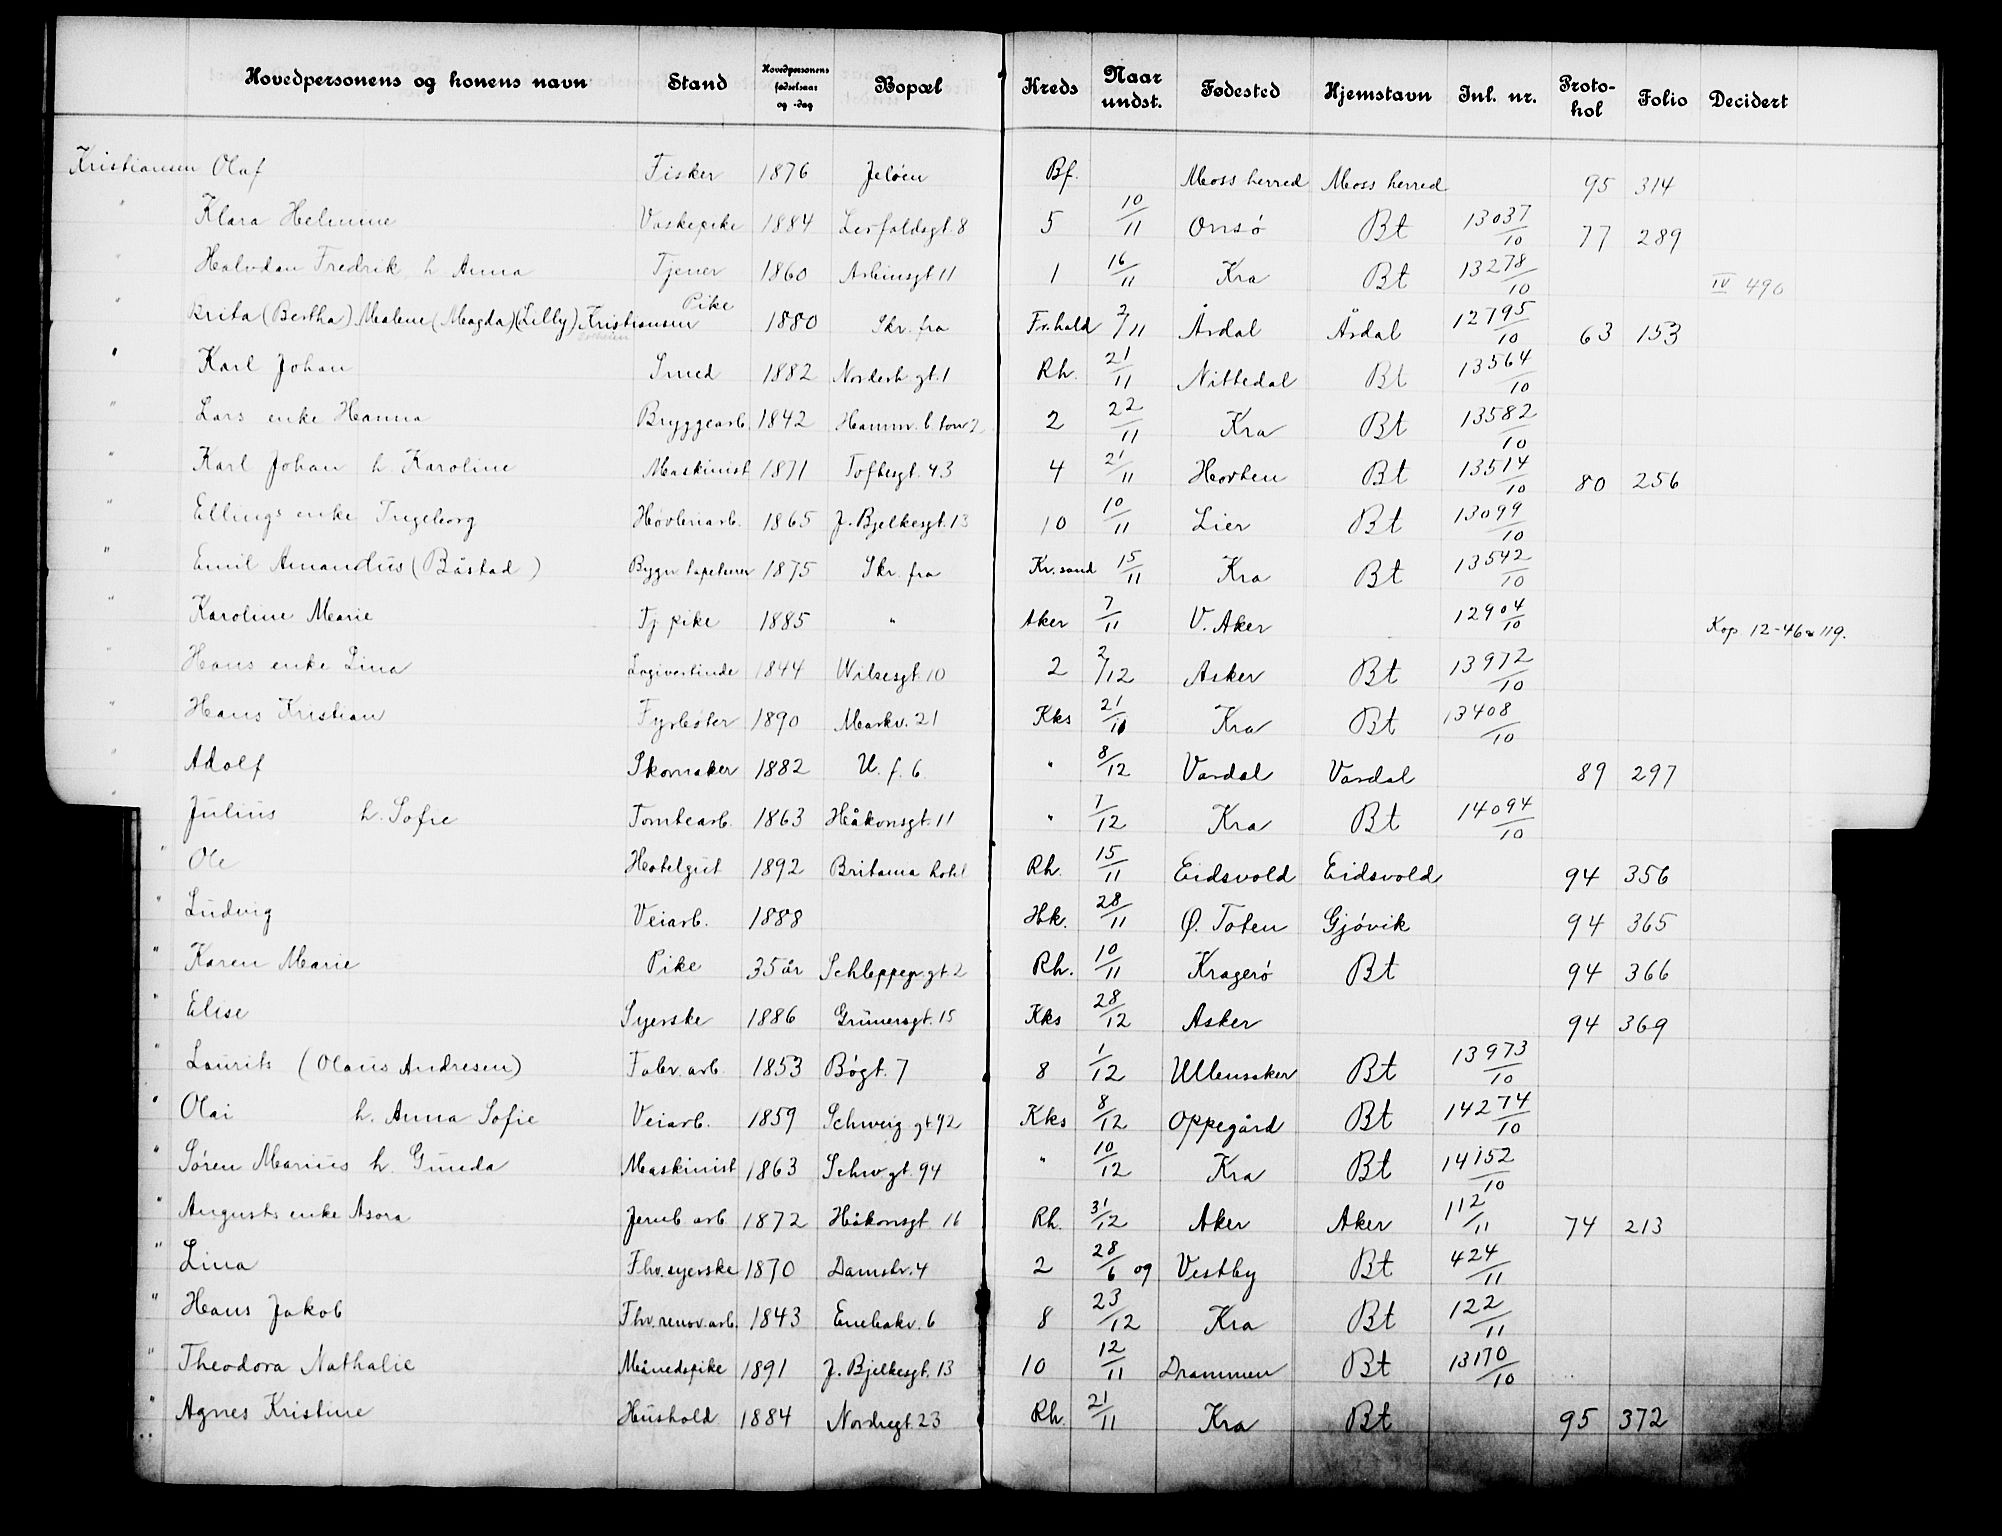 Hovedpersonens og konens navn | Stand | Hovedpersonens fødselsaar og -dag | Bopæl | Kreds | Naar undst. | Fødested | Hjemstavn | Inl. nr. | Protokol | Folio | Decidert
Kristiansen Olaf | Fisker | 1876 | Jeløen | Bf. | | Moss herred | Moss herred | | 95 | 314
" Klara Helmine | Vaskepike | 1884 | Lerfaldsgt. 8 | 5 | 10/11 | Onsø | Bt | 13037/10 | 77 | 289
" Halvdan Fredrik h Anna | Tjener | 1860 | Asbinsgt 11 | 1 | 16/11 | Kra | Bt | 13278/10 | | | IV 490
" Brita (Bertha) Malene (Magda) (Lilly) Kristiansen | Pike | 1880 | Skr. fra | Fr.hald | 2/11 | Årdal | Årdal | 12795/10 | 63 | 153
" Karl Johan | Smed | 1882 | Norderh gt. 1 | Rh. | 21/11 | Nittedal | Bt | 13564/10
" Lars enke Hanna | Bryggearb. | 1842 | Hamm. b. torv 2 | 2 | 22/11 | Kra | Bt | 13582/10
" Karl Johan h. Karoline | Maskinist | 1871 | Toftesgt. 43 | 4 | 21/11 | Horten | Bt | 13514/10 | 80 | 256
" Ellings enke Ingeborg | Høvleriarb. | 1865 | J. Bjelkesgt. 13 | 10 | 10/11 | Lier | Bt | 13099/10
" Emil Amandus (Båstad) | Bygn tapetserer | 1875 | Skr. fra | Kr.sand | 15/11 | Kra | Bt | 13542/10
" Karoline Marie | Tj pike | 1885 | " | Aker | 7/11 | V. Aker | | 12904/10 | | | Kop 12-46 119.
" Hans enke Lina | Logivertinde | 1844 | Wilsesgt. 10 | 2 | 2/12 | Asker | Bt | 13972/10
" Hans Kristian | Fyrbøter | 1890 | Markv. 21 | Kks | 21/10 | Kra | Bt | 13408/10
" Adolf | Skomaker | 1882 | U. f. 6. | " | 8/12 | Vardal | Vardal | | 89 | 297
" Julius h. Sofie | Tomtearb. | 1863 | Håkonsgt. 11 | " | 7/12 | Kra | Bt | 14094/10
" Ole | Hotelgut | 1892 | Britania hotel | Rh. | 15/11 | Eidsvold | Eidsvold | | 94 | 356
" Ludvig | Veiarb. | 1888 | | Hk. | 28/11 | Ø. Toten | Gjøvik | | 94 | 365
" Karen Marie | Pike | 35 år | Schleppegr gt. 2 | Rh. | 10/11 | Kragerø | Bt | | 94 | 366
" Elise | Syerske | 1886 | Grünersgt. 15 | Kks | 28/12 | Asker | | | 94 | 369
" Laurits (Olaus Andresen) | Fabr. arb. | 1853 | Bøgt. 7 | 8 | 1/12 | Ullensaker | Bt | 13973/10
" Olai h. Anna Sofie | Veiarb. | 1859 | Schweig gt 92 | Kks | 8/12 | Oppegård | Bt | 14274/10
" Søren Marius h. Gunda | Maskinist | 1863 | Schw.gt. 94 | " | 10/12 | Kra | Bt | 14152/10
" Augusts enke Asora | Jernb arb | 1872 | Håkonsgt. 16 | Rh. | 31/12 | Aker | Aker | 112/11 | 74 | 213
" Lina | Fhv. syerske | 1870 | Damstr. 4 | 2 | 28/6 09 | Vestby | Bt | 424/11
" Hans Jakob | Fhv. renov. arb. | 1843 | Enebakv. 6 | 8 | 23/12 | Kra | Bt | 122/11
" Theodora Nathalie | Månedspike | 1891 | J. Bjelkesgt. 13 | 10 | 12/11 | Drammen | Bt | 13170/10
" Agnes Kristine | Hushold | 1884 | Nordregt. 23 | Rh. | 21/11 | Kra | Bt | | 95 | 372